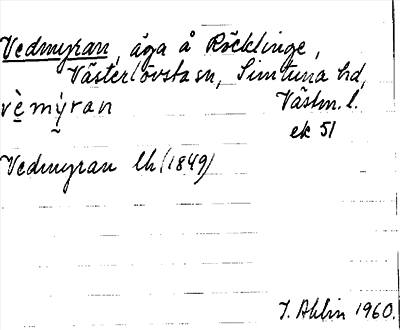 Vedmyran, äga å Röcklinge,
Västerlövsta sn, Simtuna hd,
vè̱mỳ̰ran Västm. l.
ek 51
Vedmyran lh (1849)
J. Ahlin 1960.